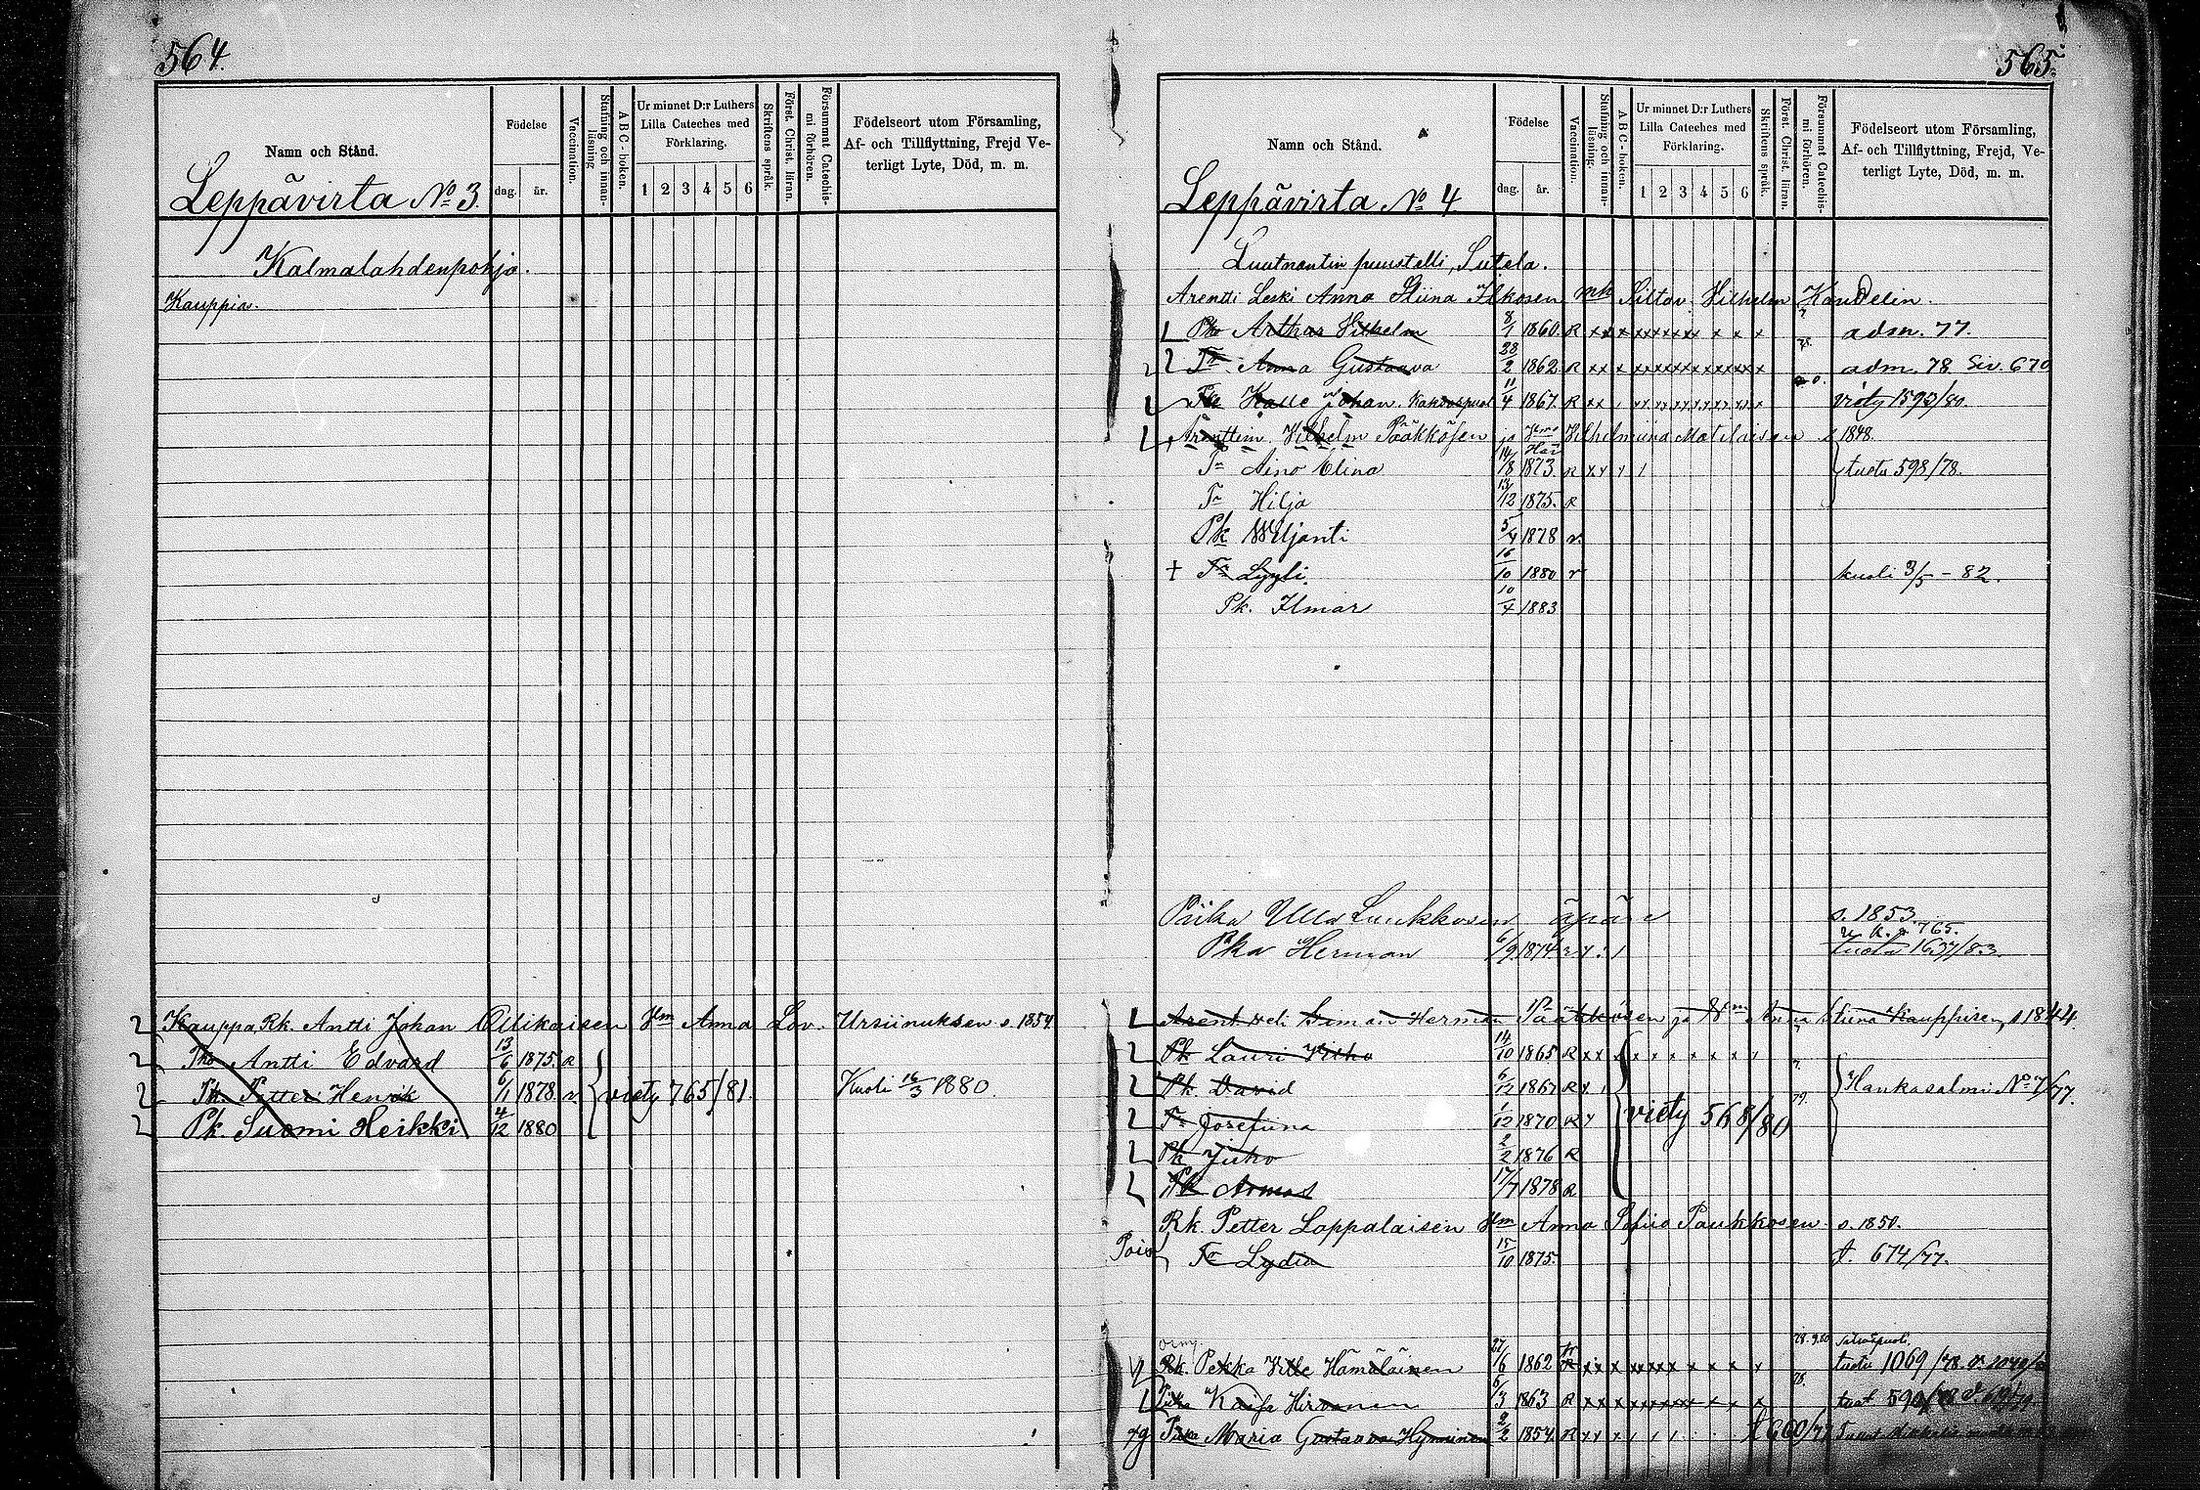 564.
Namn och Stånd.
Födelse
dag.
år.
Vaccination.
Stafning och innan-läsning
ABC-boken.
Ur minnet D:r Luthers
Lilla Cateches med
Förklaring.
1 2 3 4 5 6
Skriftens språk.
Först. Christ. läran.
Försummat Catechis-mi förhören.
Födelseort utom Församling,
Af- och Tillflyttning, Frejd Ve-
terligt Lyte, Död, m. m.
Leppävirta No 3.
Kalmalahdenpohja.
Kauppia.
Kauppa Rk. Antti Johan Ollikaisen Hm Anna Lov. Ursiinuksen s. 1854
Antti Edvard 13/6 1875. R
Pk. Petter Henrik 6/1 1878 viety 765/81. Kuoli 16/3 1880.
Pk. Suomi Heikki 4/12 1880
565.
Namn och Stånd.
Födelse
dag.
år.
Vaccination.
Stafning och innan-läsning.
ABC-boken.
Ur minnet D:r Luthers
Lilla Cateches med
Förklaring.
1 2 3 4 5 6
Skriftens språk.
Först. Christ. läran.
Försummat Catechis-mi förhören.
Födelseort utom Församling,
Af- och Tillflyttning, Frejd, Ve-
terligt Lyte, Död, m. m.
Leppävirta No 4
Luutnantin puustelli, Sutela.
Arentti Leski Anna Stiina Ilkosen Vilhelm
Arthur Vilhelm 8/1 1860 R x x x adm. 77.
Tr. Anna Gustaava 28/2 1862 R x x x adm. 78 Siv. 670
Kalle Johan 11/4 1867 R x x viety 1593/80.
Arenttim. Vilhelm Pääkkösen ja Hmo Vilhelmiina Matilaisen s 1848.
Tr Aino Elina 14/8 1873 R tuotu 598/78.
Tr Hilja 13/12 1875. R
Pk Wiljanti 5/4 1878 r.
† Tr Lyyli. 16/10 1880 r kuoli 3/5 - 82.
Pk. Ilmar 10/4 1883
Piika Ulla Luukkosen äpärä s. 1853
765.
Pka Herman 6/9 1874 tuotu 1637/83.
Herman Pääkkösen ja Hm Anna Stiina Kauppisen, s 1844.
Pk Lauri Vilho 14/10 1865 R x x
Pk. David 6/12 1867 R Hankasalmi No 7/77.
Tr Josefiina 1/12 1870 R viety 568/80
Pk Juho 2/2 1876 R
Pk Armas 17/7 1878 R
Rk. Petter Lappalaisen Hm Anna Sofiia Paukkosen s. 1850.
Pois Tr Lydia 15/10 1875. t. 674/77.
Rk. Pekka Ville Hämäläinen 27/6 1862 tuotu 1069/78
Kaisa Hirvonen 6/3 1863 R
79 Maria Gustaava Hyvönen 2/2 1854 R 660/77